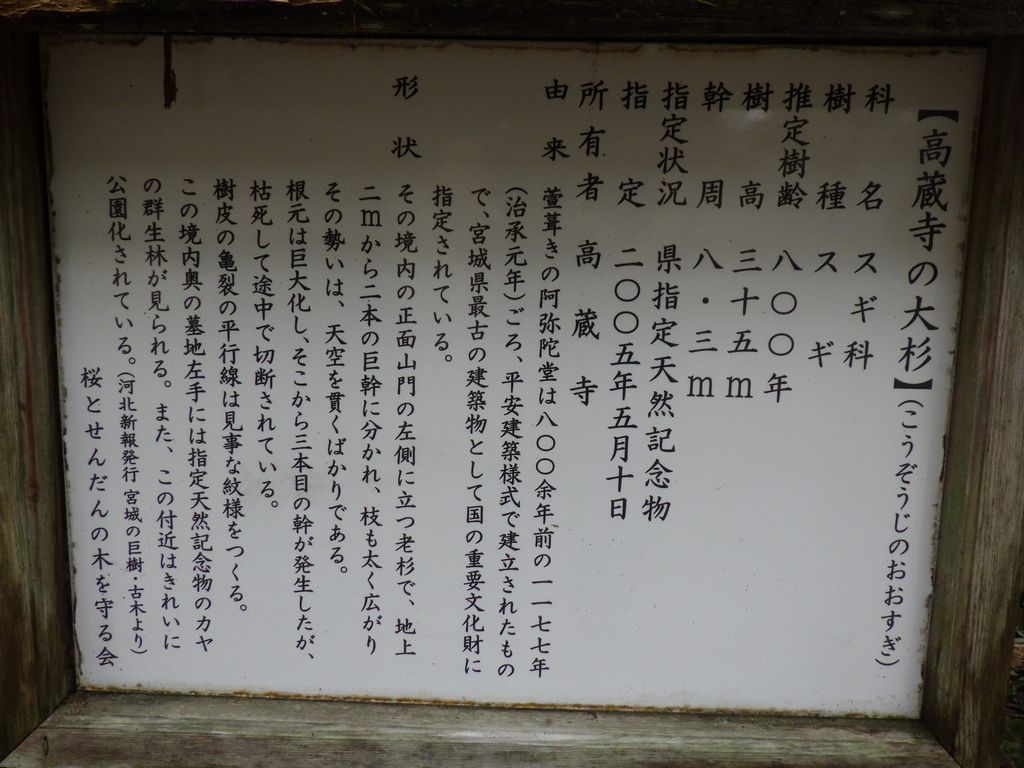 【高蔵寺の大杉】(こうぞうじのおおすぎ)
科名 スギ科
樹種 スギ
推定樹齢 八〇〇年
樹高 三十五m
幹周 八・三m
指定状況 県指定天然記念物
指定 二〇〇五年五月十日
所有者 高蔵寺
由来 萱葺きの阿弥陀堂は八〇〇余年前の一一七七年
(治承元年)ごろ、平安建築様式で建立されたもの
で、宮城県最古の建築物として国の重要文化財に
指定されている。
形状 その境内の正面山門の左側に立つ老杉で、地上
二mから二本の巨幹に分かれ、枝も太く広がり
その勢いは、天空を貫くばかりである。
根元は巨大化し、そこから三本目の幹が発生したが、
枯死して途中で切断されている。
樹皮の亀裂の平行線は見事な紋様をつくる。
この境内奥の墓地左手には指定天然記念物のカヤ
の群生林が見られる。また、この付近はきれいに
公園化されている。(河北新報発行 宮城の巨樹・古木より)
桜とせんだんの木を守る会